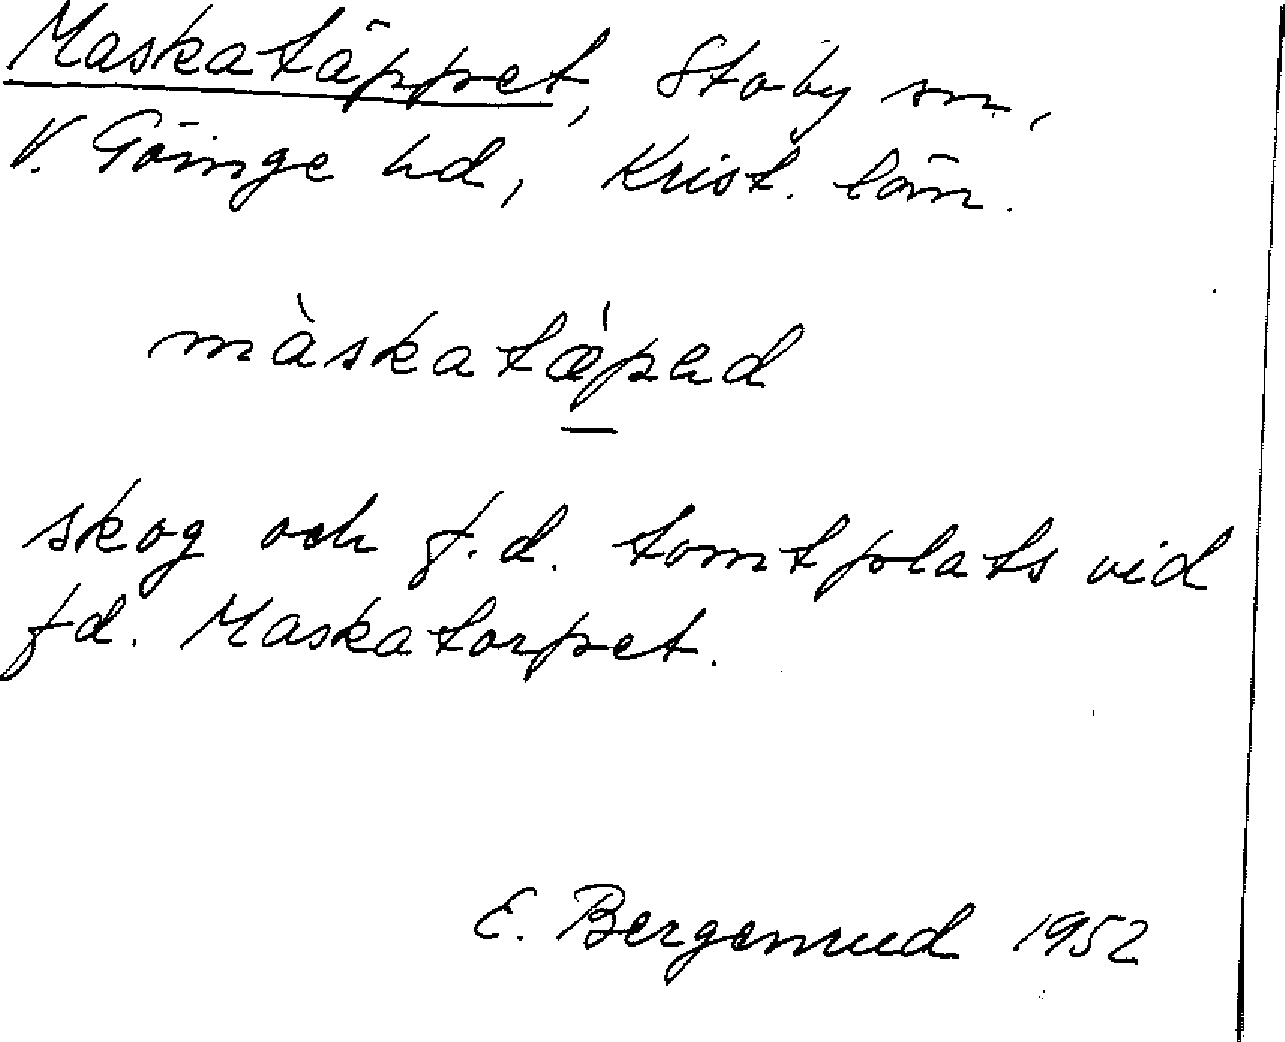 Maskatäppet, Stoby sn,
V. Göinge hd, Krist. län.
màskatæ̀pəd
skog och f.d. tomtplats vid
fd. Maskatorpet.
E. Bergenrud 1952